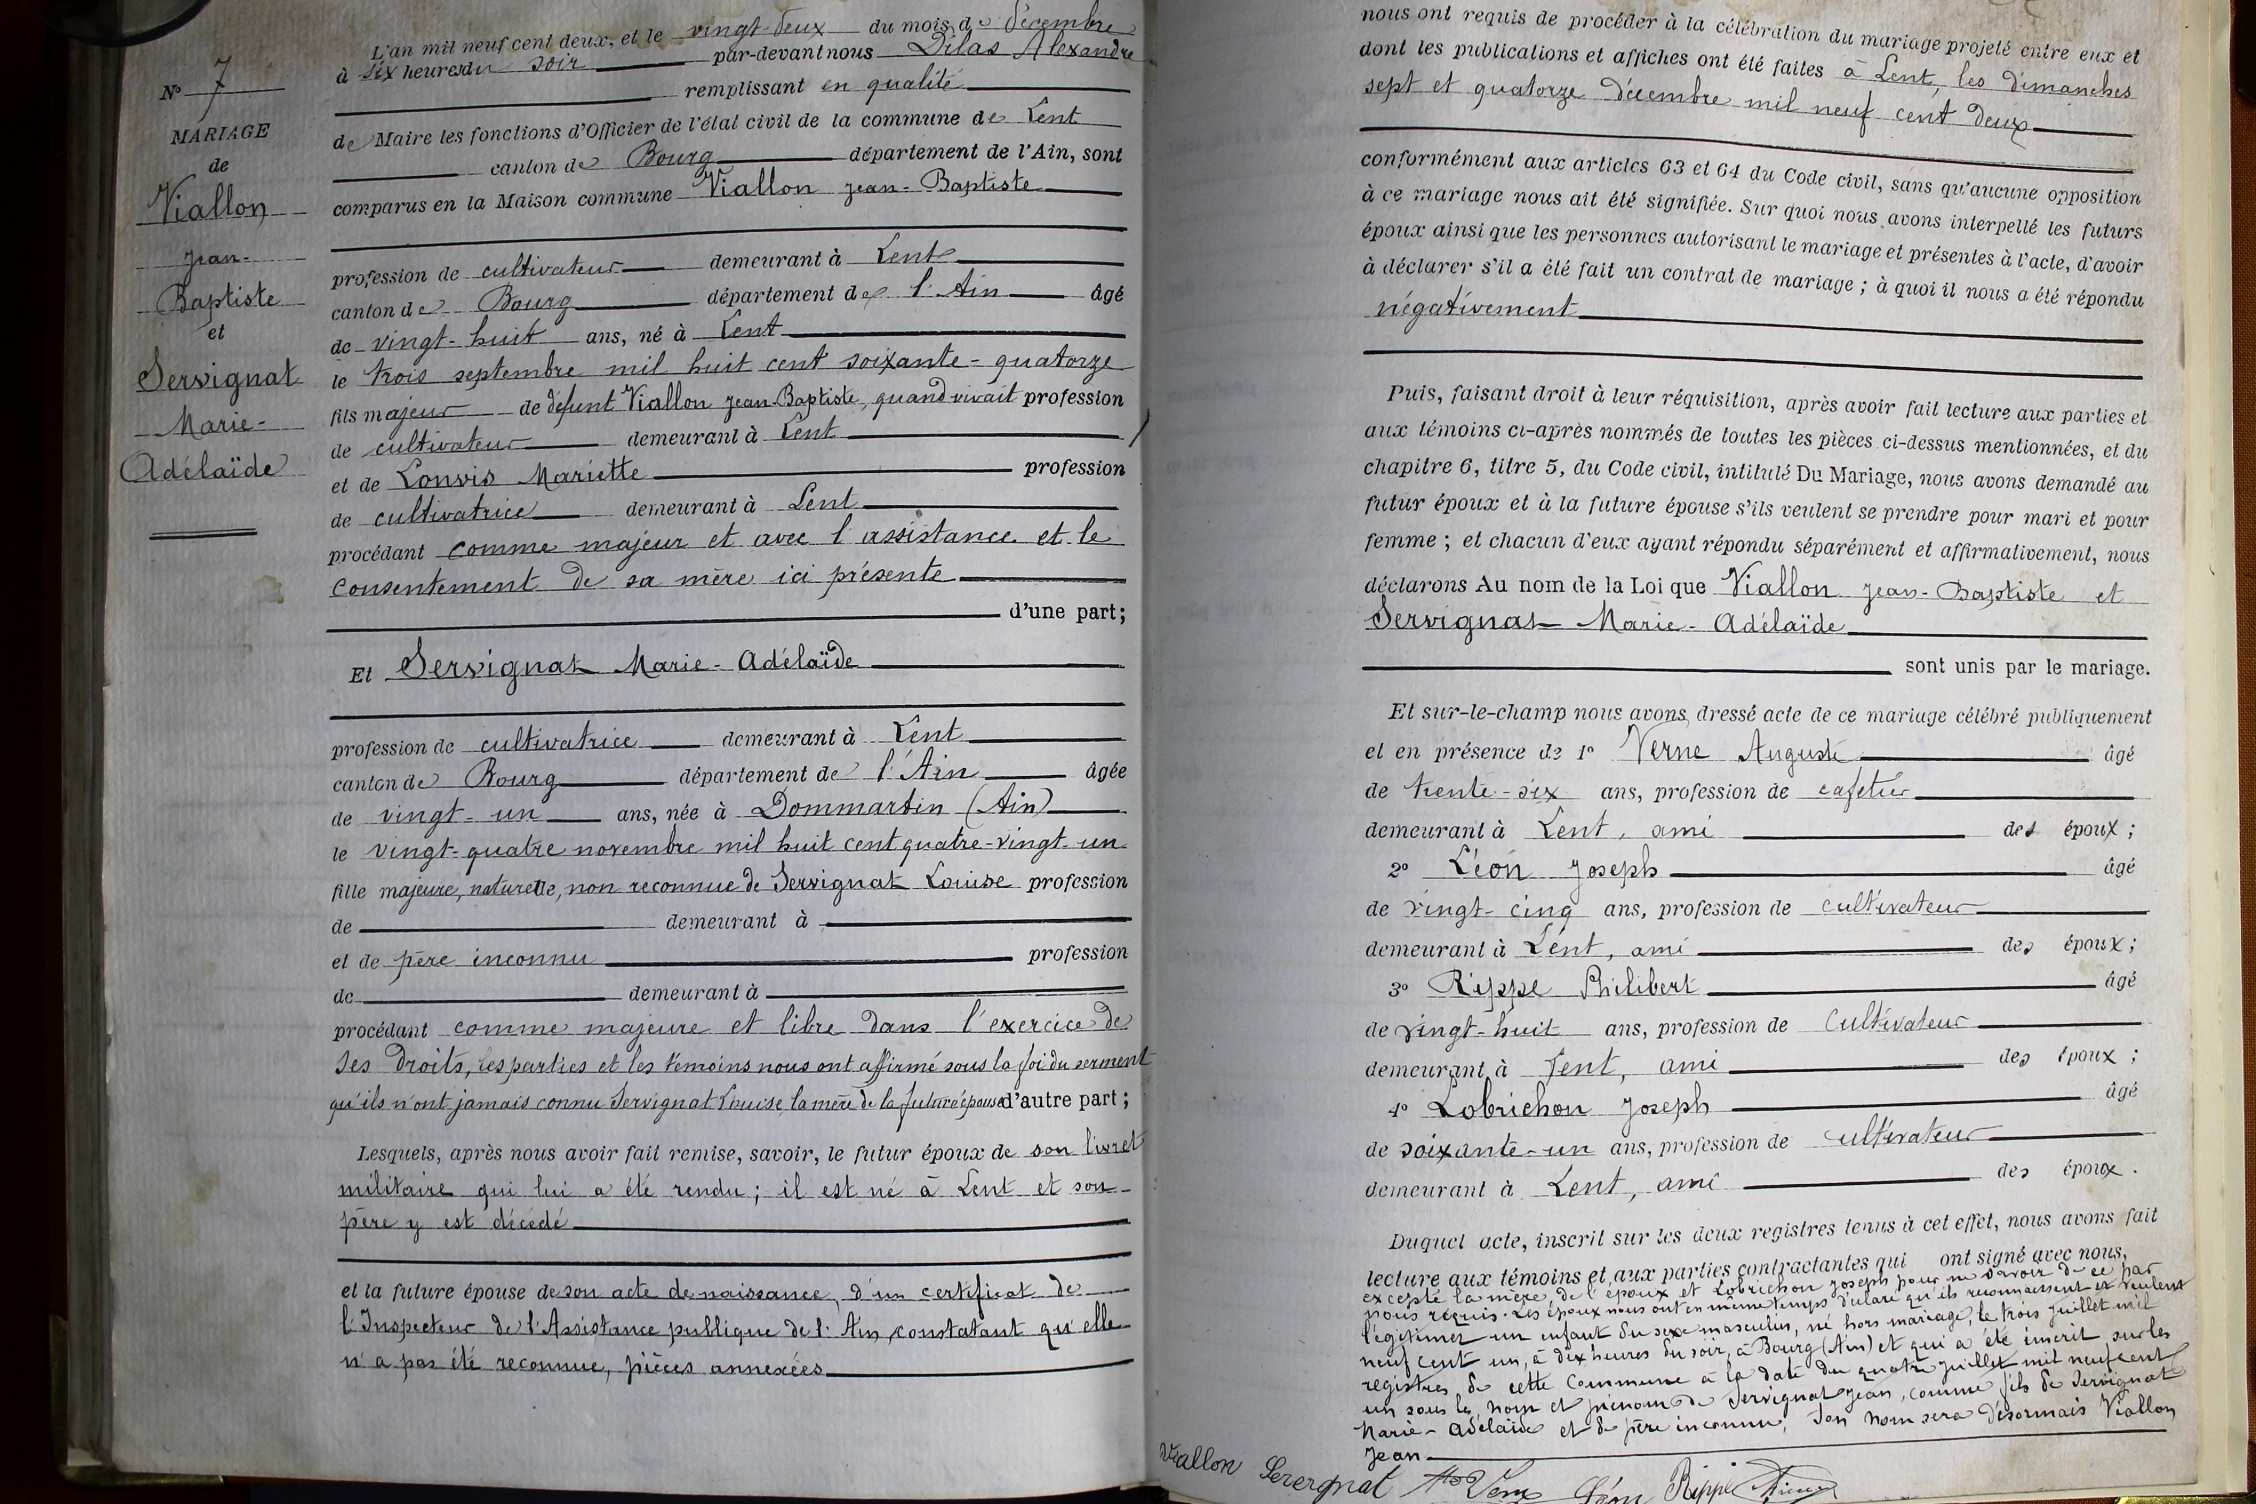 N° 7
MARIAGE
de
Viallon
Jean-
Baptiste
et
Servignat
Marie-
Adélaïde
L'an mil neuf cent deux, et le vingt-deux du mois de décembre
à six heures du soir par-devant nous Dilas Alexandre
remplissant en qualité
de Maire les fonctions d'Officier de l'état civil de la commune de Lent
canton de Bourg département de l'Ain, sont
comparus en la Maison commune Viallon Jean-Baptiste
profession de cultivateur demeurant à Lent
canton de Bourg département de l'Ain âgé
de vingt-huit ans, né à Lent
le trois septembre mil huit cent soixante-quatorze
fils majeur de défunt Viallon Jean-Baptiste, quand vivait profession
de cultivateur demeurant à Lent
et de Convis Mariette profession
de cultivatrice demeurant à Lent
procédant comme majeur et avec l'assistance et le
consentement de sa mère ici présente
d'une part;
Et Servignat Marie-Adélaïde
profession de cultivatrice demeurant à Lent
canton de Bourg département de l'Ain âgée
de vingt-un ans, née à Dommartin (Ain)
le vingt-quatre novembre mil huit cent quatre-vingt-un
fille majeure, naturelle, non reconnue de Servignat Louise profession
de demeurant à
et de père inconnu profession
de demeurant à
procédant comme majeure et libre dans l'exercice de
ses droits, les parties et les témoins nous ont affirmé sous la foi du serment
qu'ils n'ont jamais connu Servignat Louise, la mère de la future épouse d'autre part;
Lesquels, après nous avoir fait remise, savoir, le futur époux de son livret
militaire qui lui a été rendu; il est né à Lent et son
père y est décédé
et la future épouse de son acte de naissance, d'un certificat de
l'Inspecteur de l'Assistance publique de l'Ain, constatant qu'elle
n'a pas été reconnue, pièces annexées
nous ont requis de procéder à la célébration du mariage projeté entre eux et
dont les publications et affiches ont été faites à Lent, les dimanches
sept et quatorze décembre mil neuf cent deux
conformément aux articles 63 et 64 du Code civil, sans qu'aucune opposition
à ce mariage nous ait été signifiée. Sur quoi nous avons interpellé les futurs
époux ainsi que les personnes autorisant le mariage et présentes à l'acte, d'avoir
à déclarer s'il a été fait un contrat de mariage; à quoi il nous a été répondu
négativement
Puis, faisant droit à leur réquisition, après avoir fait lecture aux parties et
aux témoins ci-après nommés de toutes les pièces ci-dessus mentionnées, et du
chapitre 6, titre 5, du Code civil, intitulé Du Mariage, nous avons demandé au
futur époux et à la future épouse s'ils veulent se prendre pour mari et pour
femme; et chacun d'eux ayant répondu séparément et affirmativement, nous
déclarons Au nom de la Loi que Viallon Jean-Baptiste et
Servignat Marie-Adélaïde
sont unis par le mariage.
Et sur-le-champ nous avons dressé acte de ce mariage célébré publiquement
et en présence de 1° Verne Auguste âgé
de trente-six ans, profession de cafetier
demeurant à Lent, ami des époux;
2° Léon Joseph âgé
de vingt-cinq ans, profession de cultivateur
demeurant à Lent, ami des époux;
3° Rippe Philibert âgé
de vingt-huit ans, profession de cultivateur
demeurant à Lent, ami des époux;
4° Lobrichon Joseph âgé
de soixante-un ans, profession de cultivateur
demeurant à Lent, ami des époux.
Duquel acte, inscrit sur les deux registres tenus à cet effet, nous avons fait
lecture aux témoins et aux parties contractantes qui ont signé avec nous,
excepté la mère de l'époux et Lobrichon Joseph pour ne savoir de ce par
nous requis. Les époux nous ont en même temps déclaré qu'ils reconnaissent et veulent
légitimer un enfant du sexe masculin, né hors mariage, le trois juillet mil
neuf cent un, à dix heures du soir, à Bourg (Ain) et qui a été inscrit sur les
registres de cette commune à la date du quatre juillet mil neuf cent
un sous les nom et prénom de Servignat Jean, comme fils de Servignat
Marie-Adélaïde et de père inconnu, son nom sera désormais Viallon
Jean
Viallon Serergnat Léon Rippe